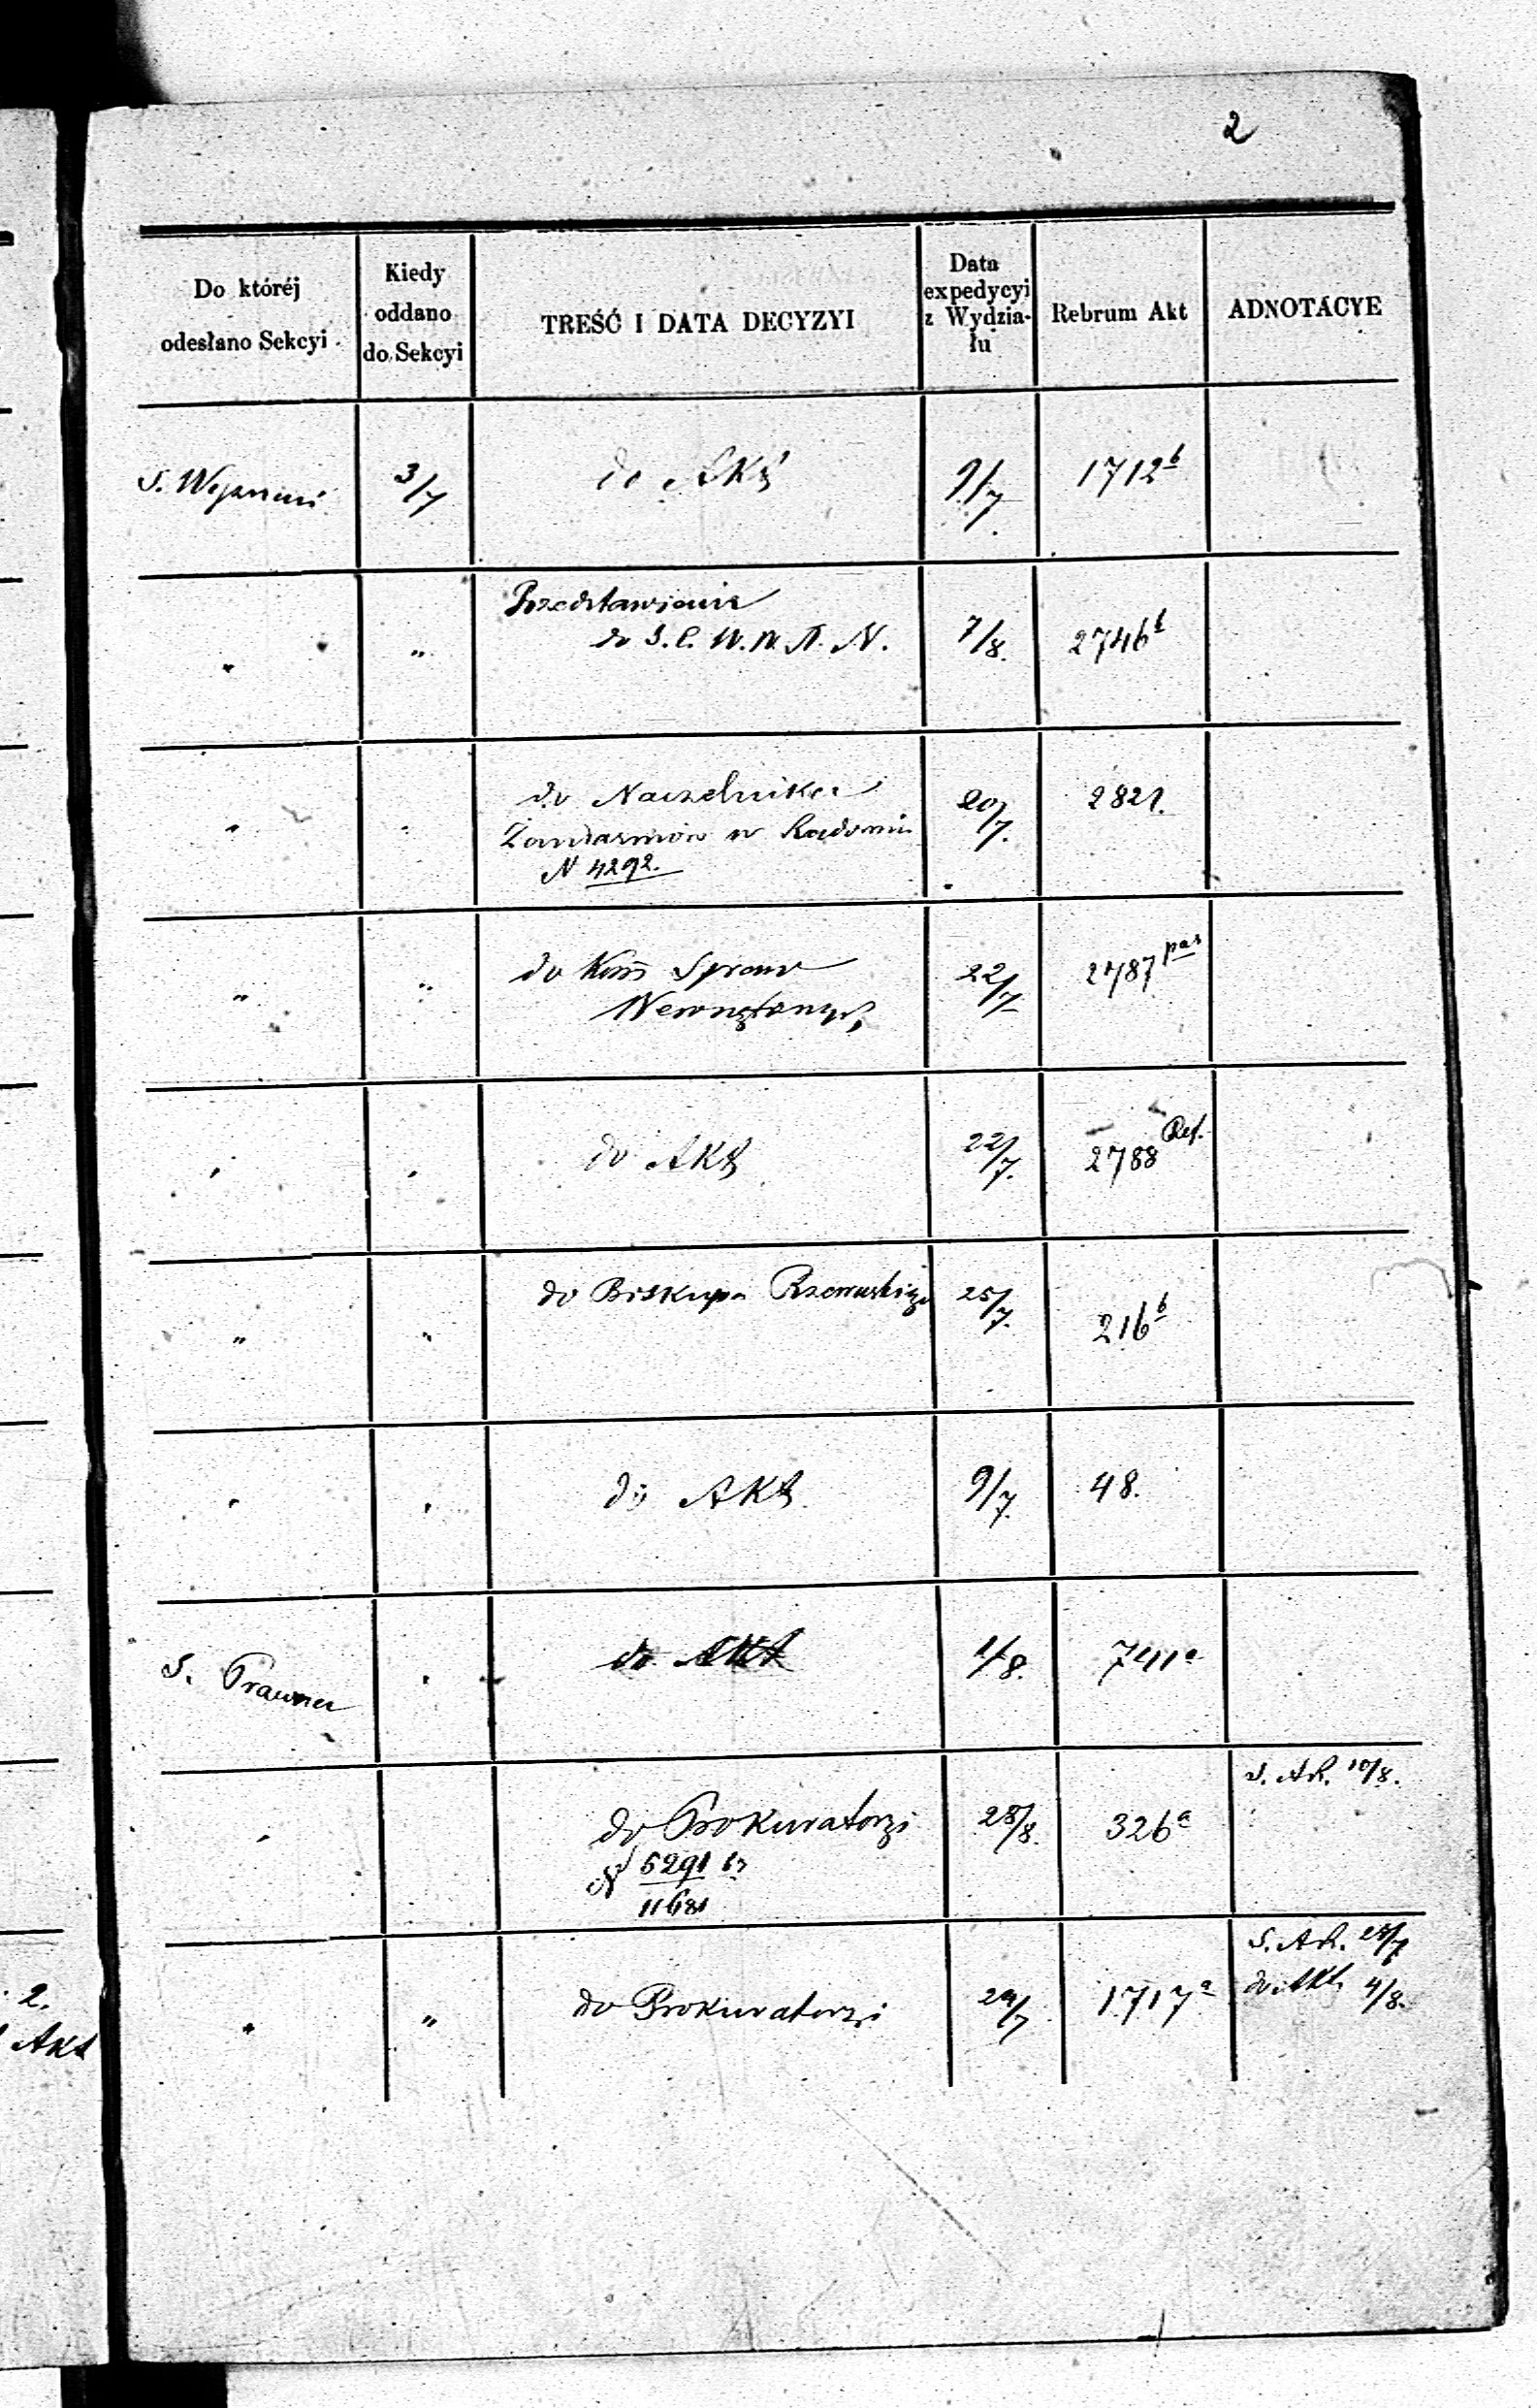 2
Do któréj
odesłano Sekcyi
Kiedy
oddano
do Sekcyi
TREŚĆ I DATA DECYZYI
Data
expedycyi
z Wydzia-
łu
Rebrum Akt
ADNOTACYE
S. 3/7 do Akt 9/7 1712b
Przedstawienie
" " do 7/8. 2746b
do Naczelnika
" " Żandarmów w Radomiu 20/7. 2821.
N 4292.
" " do Kom Spraw 22/7 2787 pas
Wewnętrznych
" " do Akt 22/7. 2788 Ref.
do Biskupa Rzewuskiego 25/7.
" " 216b
" " do Akt 9/7. 48.
S. Prawna " do Akt 1/8. 741a
S. Ad. 10/8.
" do Prokuratorji 28/8. 326a
N 5291
11681
S. Ad. 28/7
" " do Prokuratorji 29/7 1717a do Akt 4/8.
2.
Akt